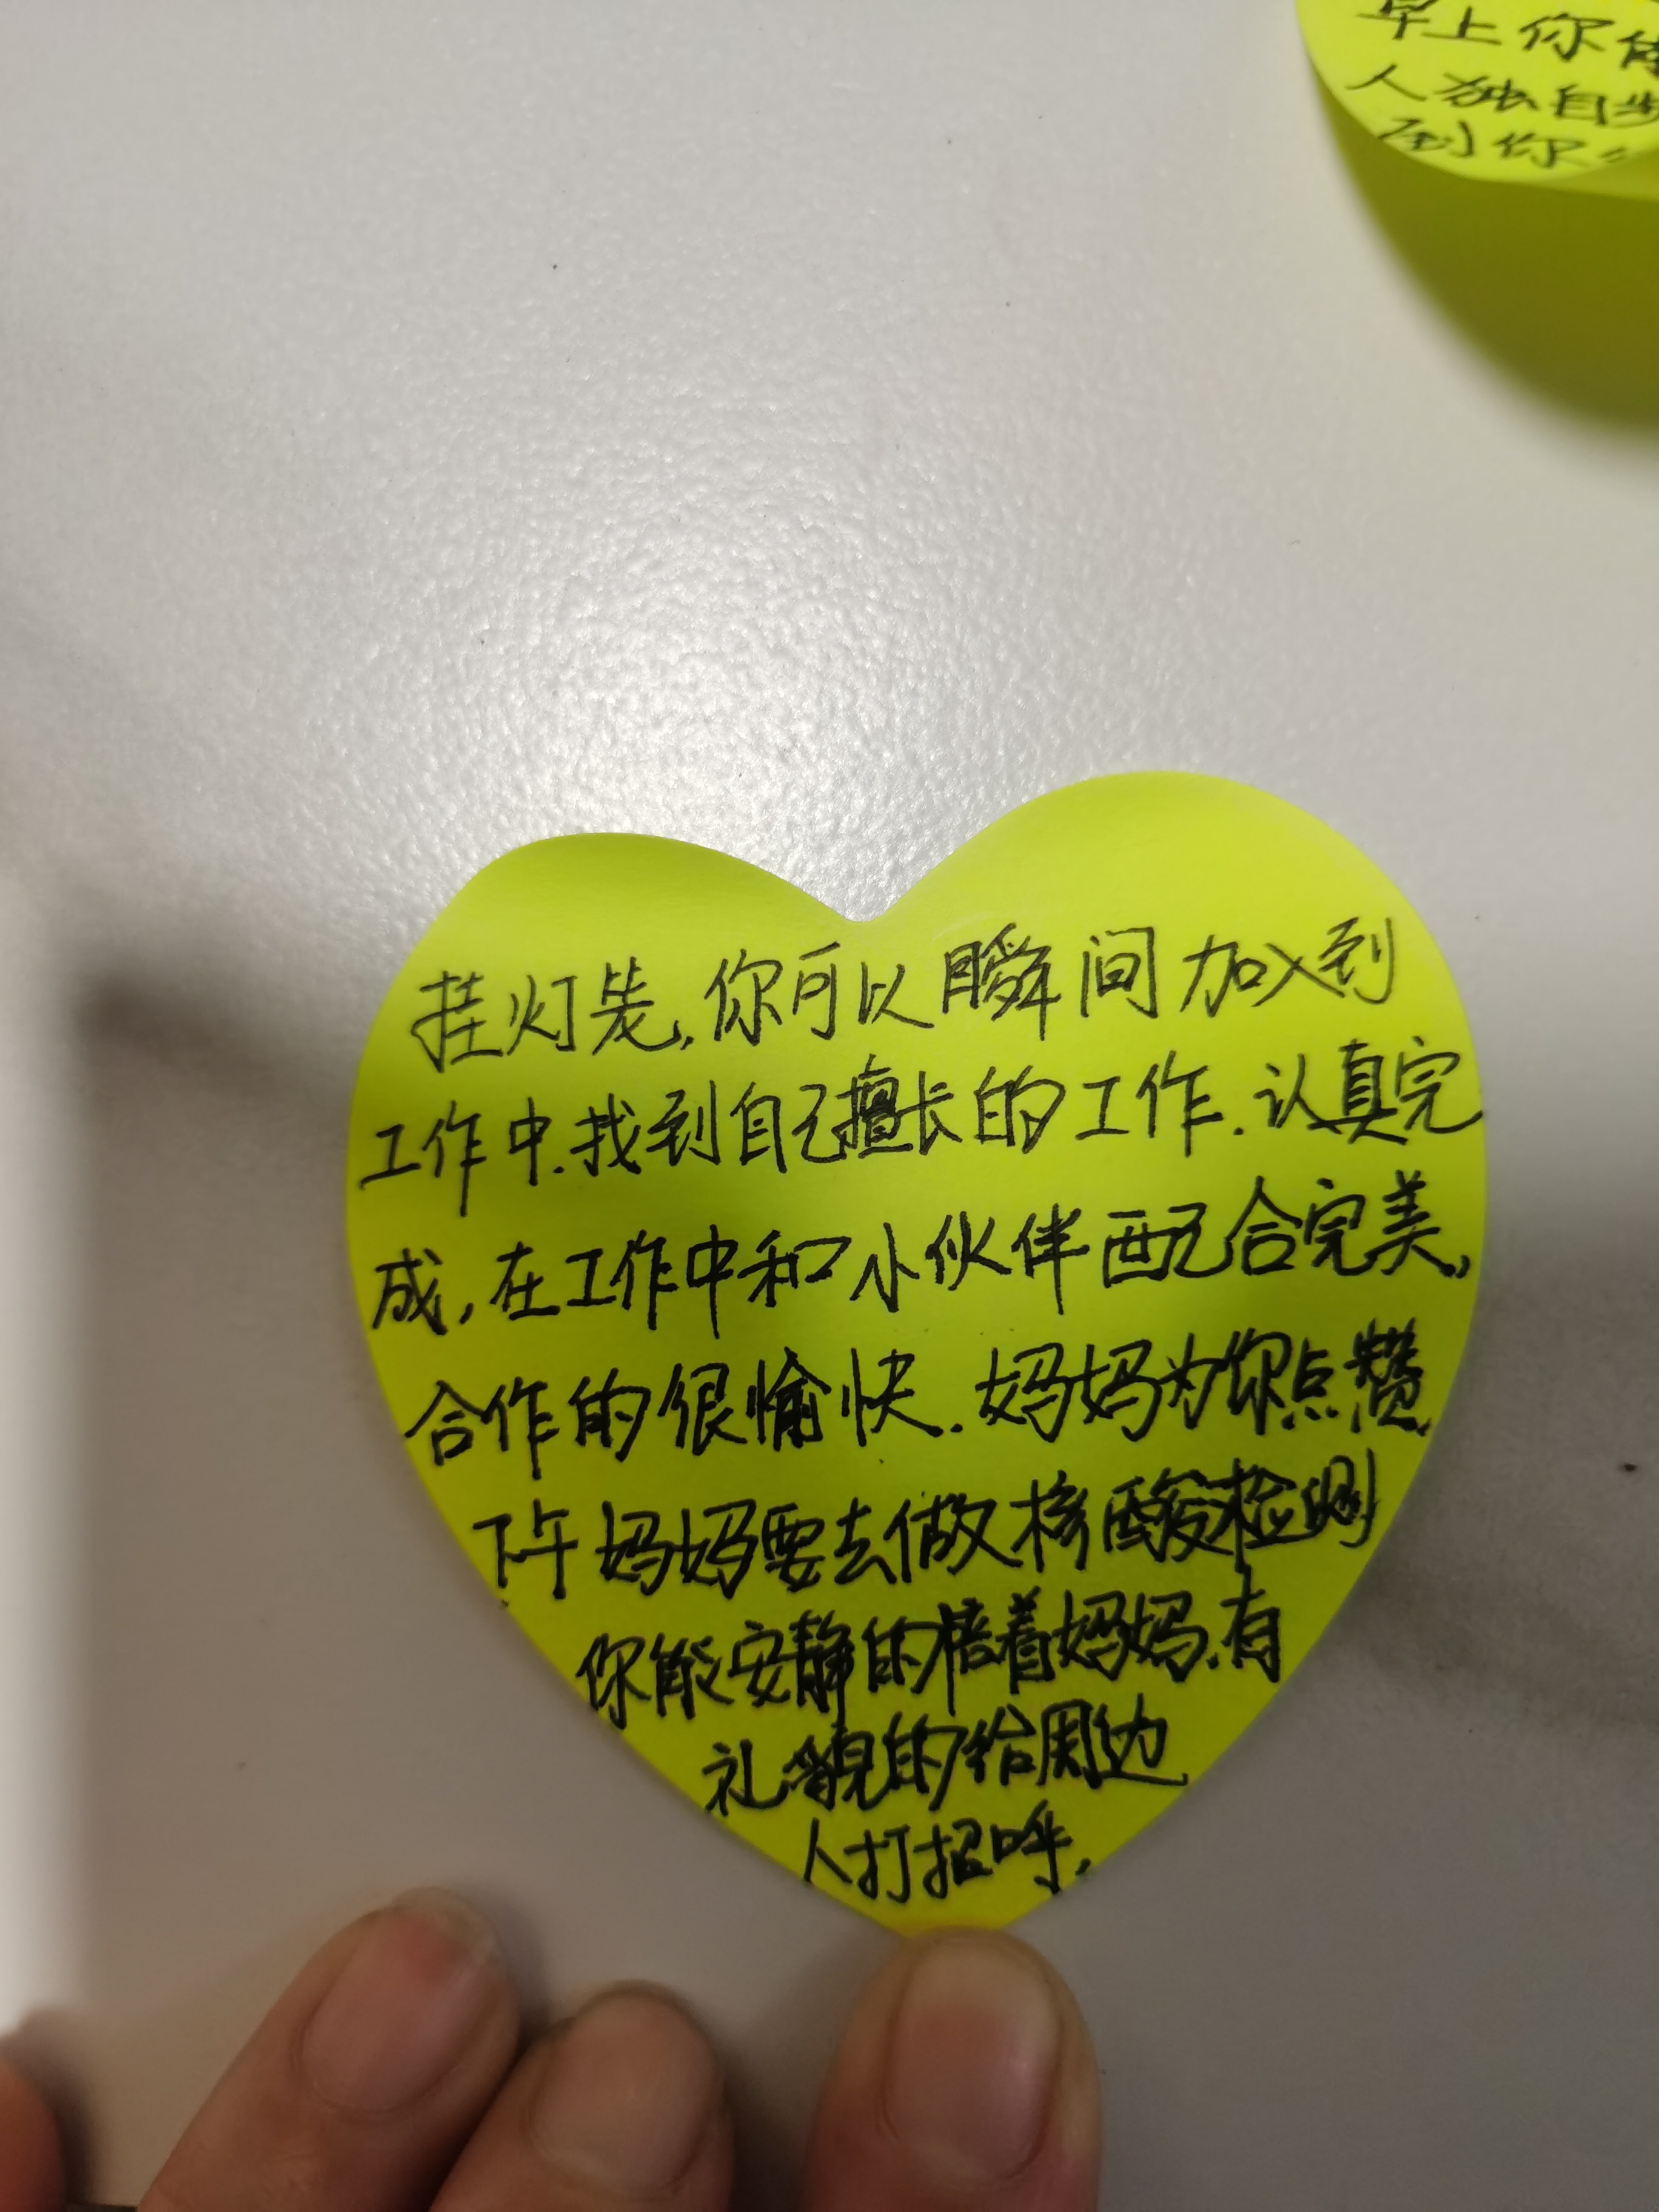 早上你
人独自步
到你
挂灯笼,你可以瞬间加入到
工作中.找到自己擅长的工作.认真完
成,在工作中和小伙伴配合完美,
合作的很愉快.妈妈为你点赞.
下午妈妈要去做核酸检测
你能安静的陪着妈妈.有
礼貌的给周边
人打招呼.